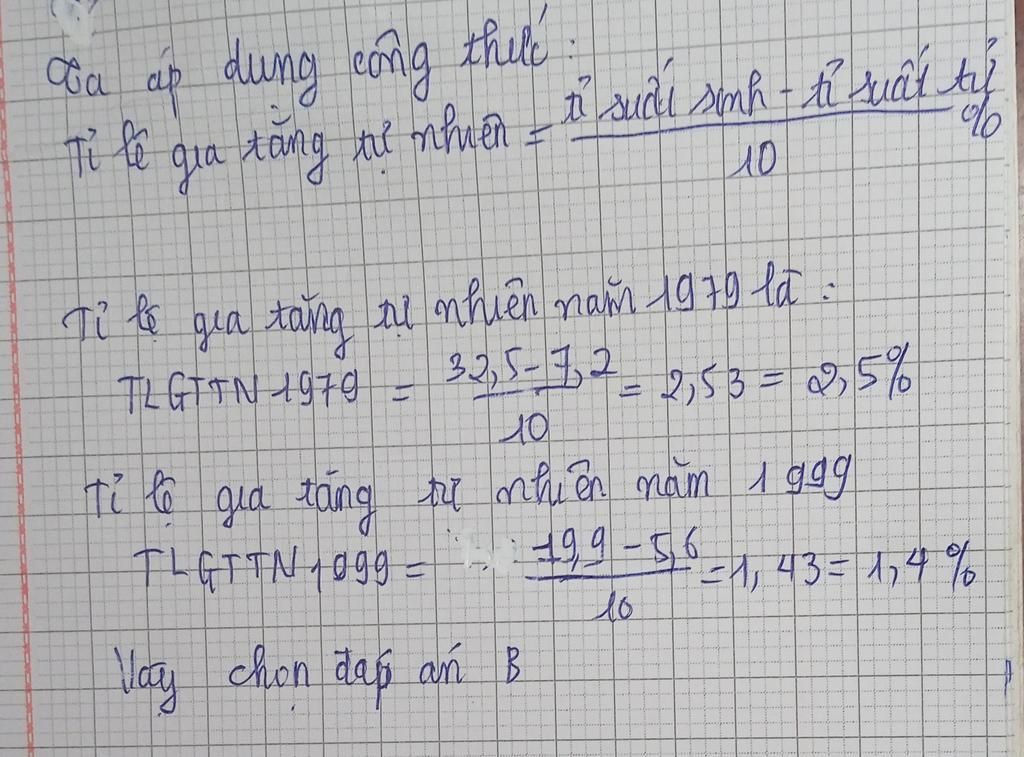 Ta áp dụng công thức:
Tỉ lệ gia tăng tự nhiên = tỉ suất sinh - tỉ suất tử / 10 %
Tỉ lệ gia tăng tự nhiên năm 1979 là:
TLGTTN 1979 = 32,5 - 7,2 / 10 = 2,53 = 2,5%
Tỉ lệ gia tăng tự nhiên năm 1999
TLGTTN 1999 = 19,9 - 5,6 / 10 = 1,43 = 1,4%
Vậy chọn đáp án B